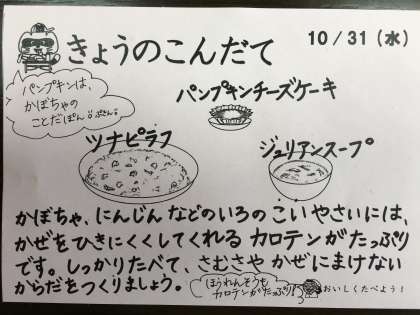 きょうのこんだて
10/31(水)
パンプキンは、
かぼちゃの
ことだぽん。
パンプキンチーズケーキ
ツナピラフ
ジュリアンスープ
かぼちゃ、にんじんなどのいろのこいやさいには、
かぜをひきにくくしてくれるカロテンがたっぷり
です。しっかりたべて、さむさやかぜにまけない
からだをつくりましょう。
ほうれんそうも
カロテンがたっぷり!
おいしくたべよう!